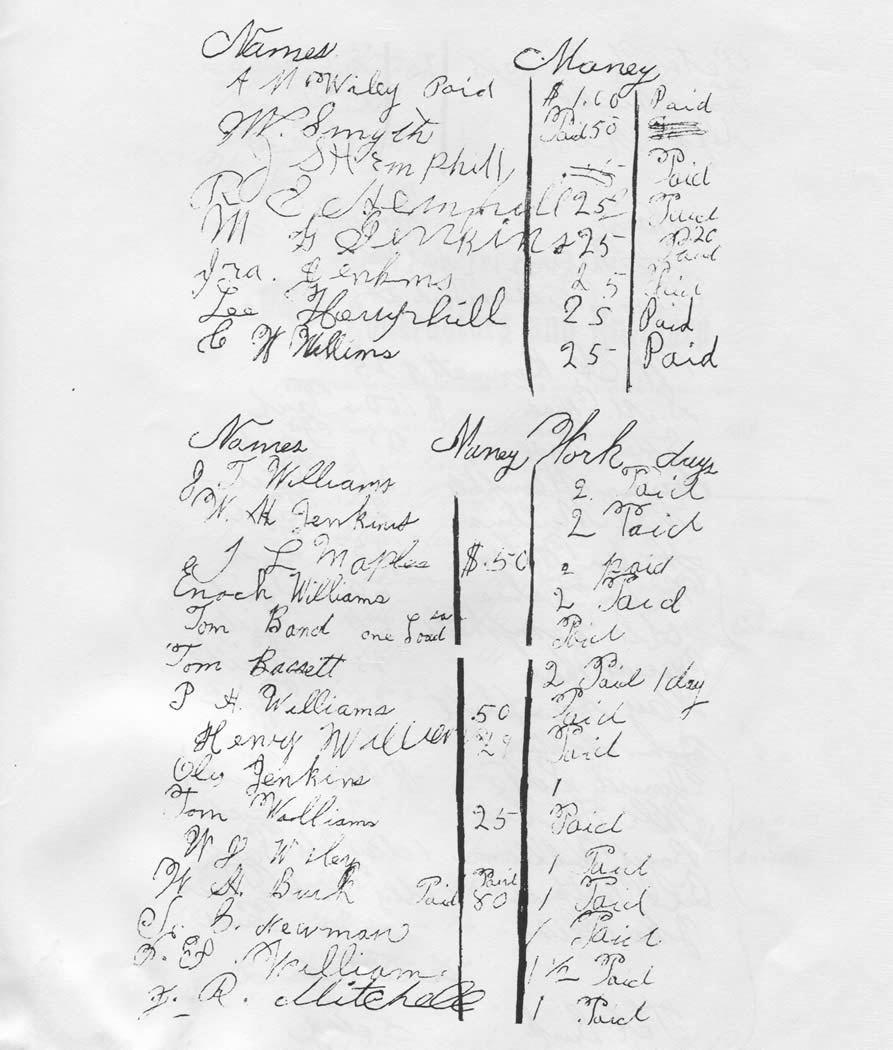 Names Money
A M Wiley Paid $1.00 Paid
W. Smyth Paid 50
J S Hemphill Paid
R E Hemphill 25 Paid
M G Jenkins 25 Paid
Ira. Jenkins 25 Paid
Lee Hemphill 25 Paid
E W Willims 25 Paid
Names Money Work days
J T Williams 2 Paid
W. H Jenkins 2 Paid
J L Maples $.50 2 paid
Enoch Williams 2 Paid
Tom Band one Load Paid
Tom Bassett 2 Paid 1 day
P H. Williams .50 Paid
Henry Paid
Oly Jenkins 1
Tom Williams 25 Paid
W J Wiley 1 Paid
W H. Burk Paid Paid 80 1 Paid
B. Newman 1 Paid
William. 1 1/2 Paid
R. Mitchell 1 Paid